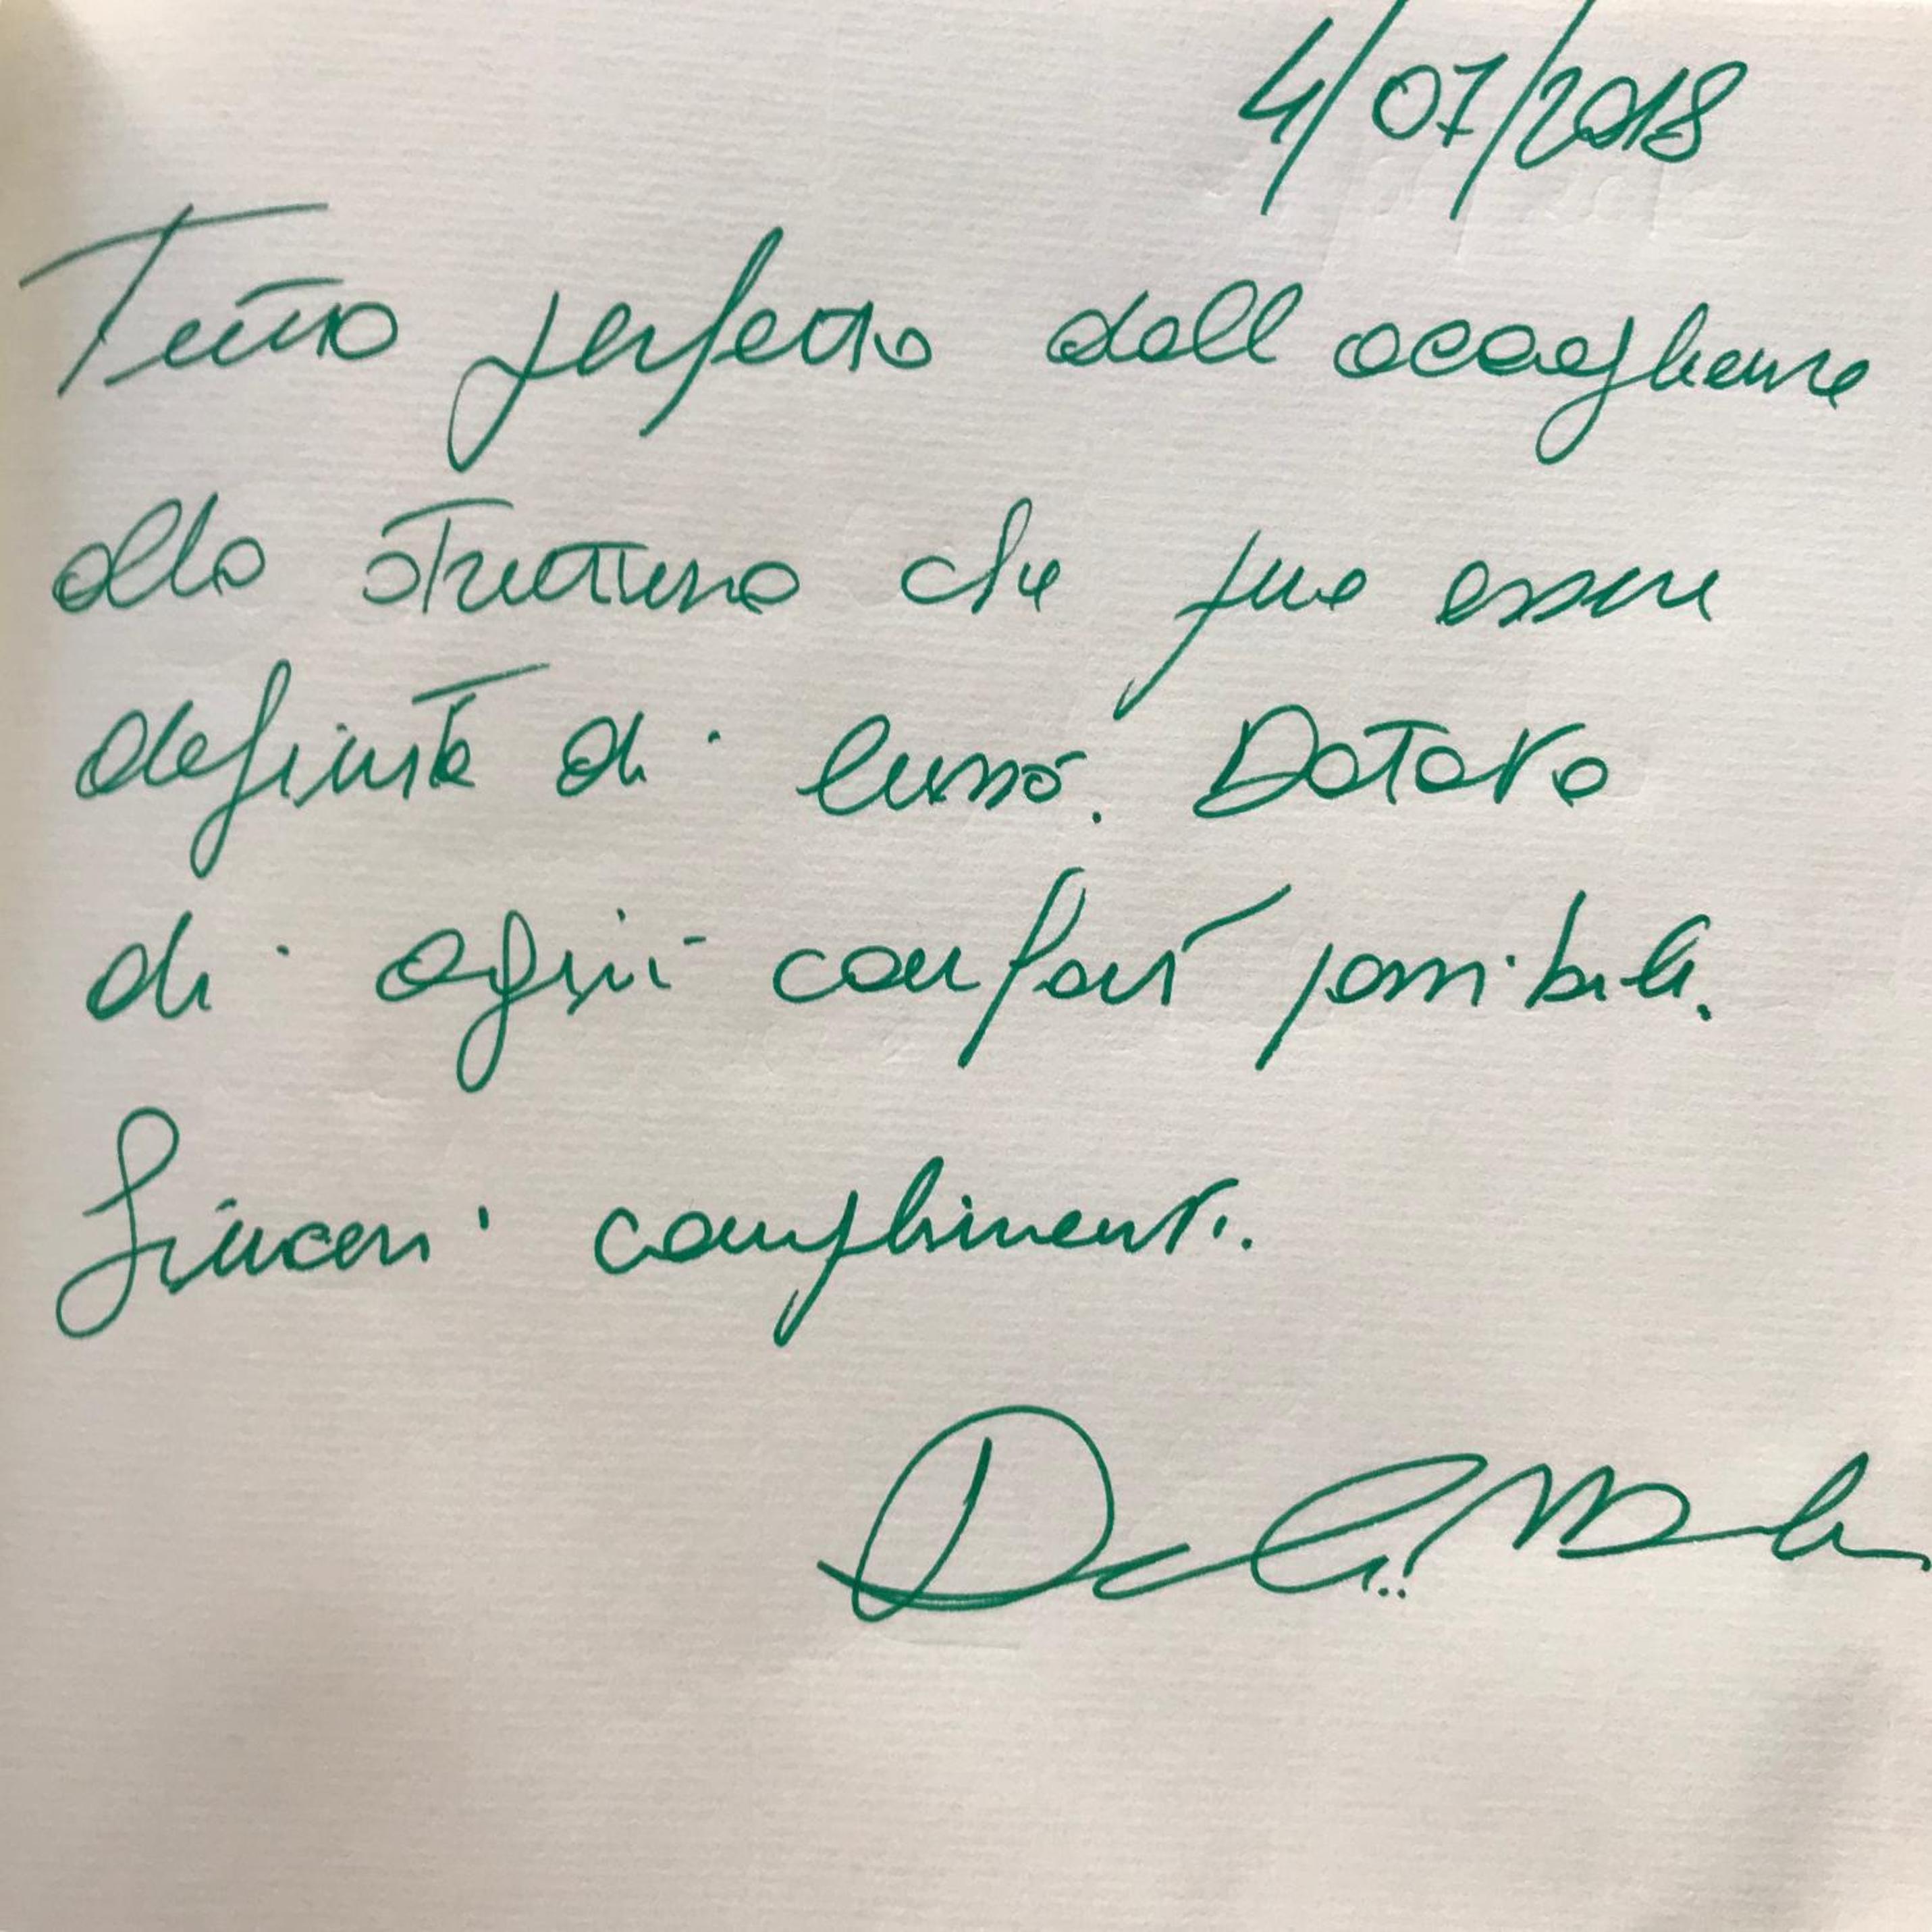 4/07/2018
Tutto perfetto dall accoglienza
alla struttura che puo essere
definita di lusso. Dotata
di ogni confort possibile.
Sinceri complimenti.